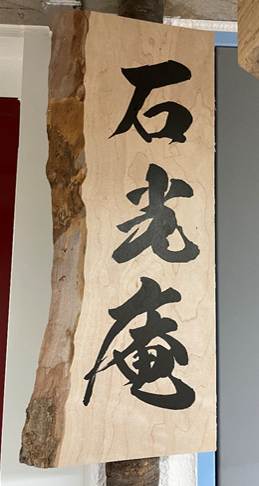 石光庵